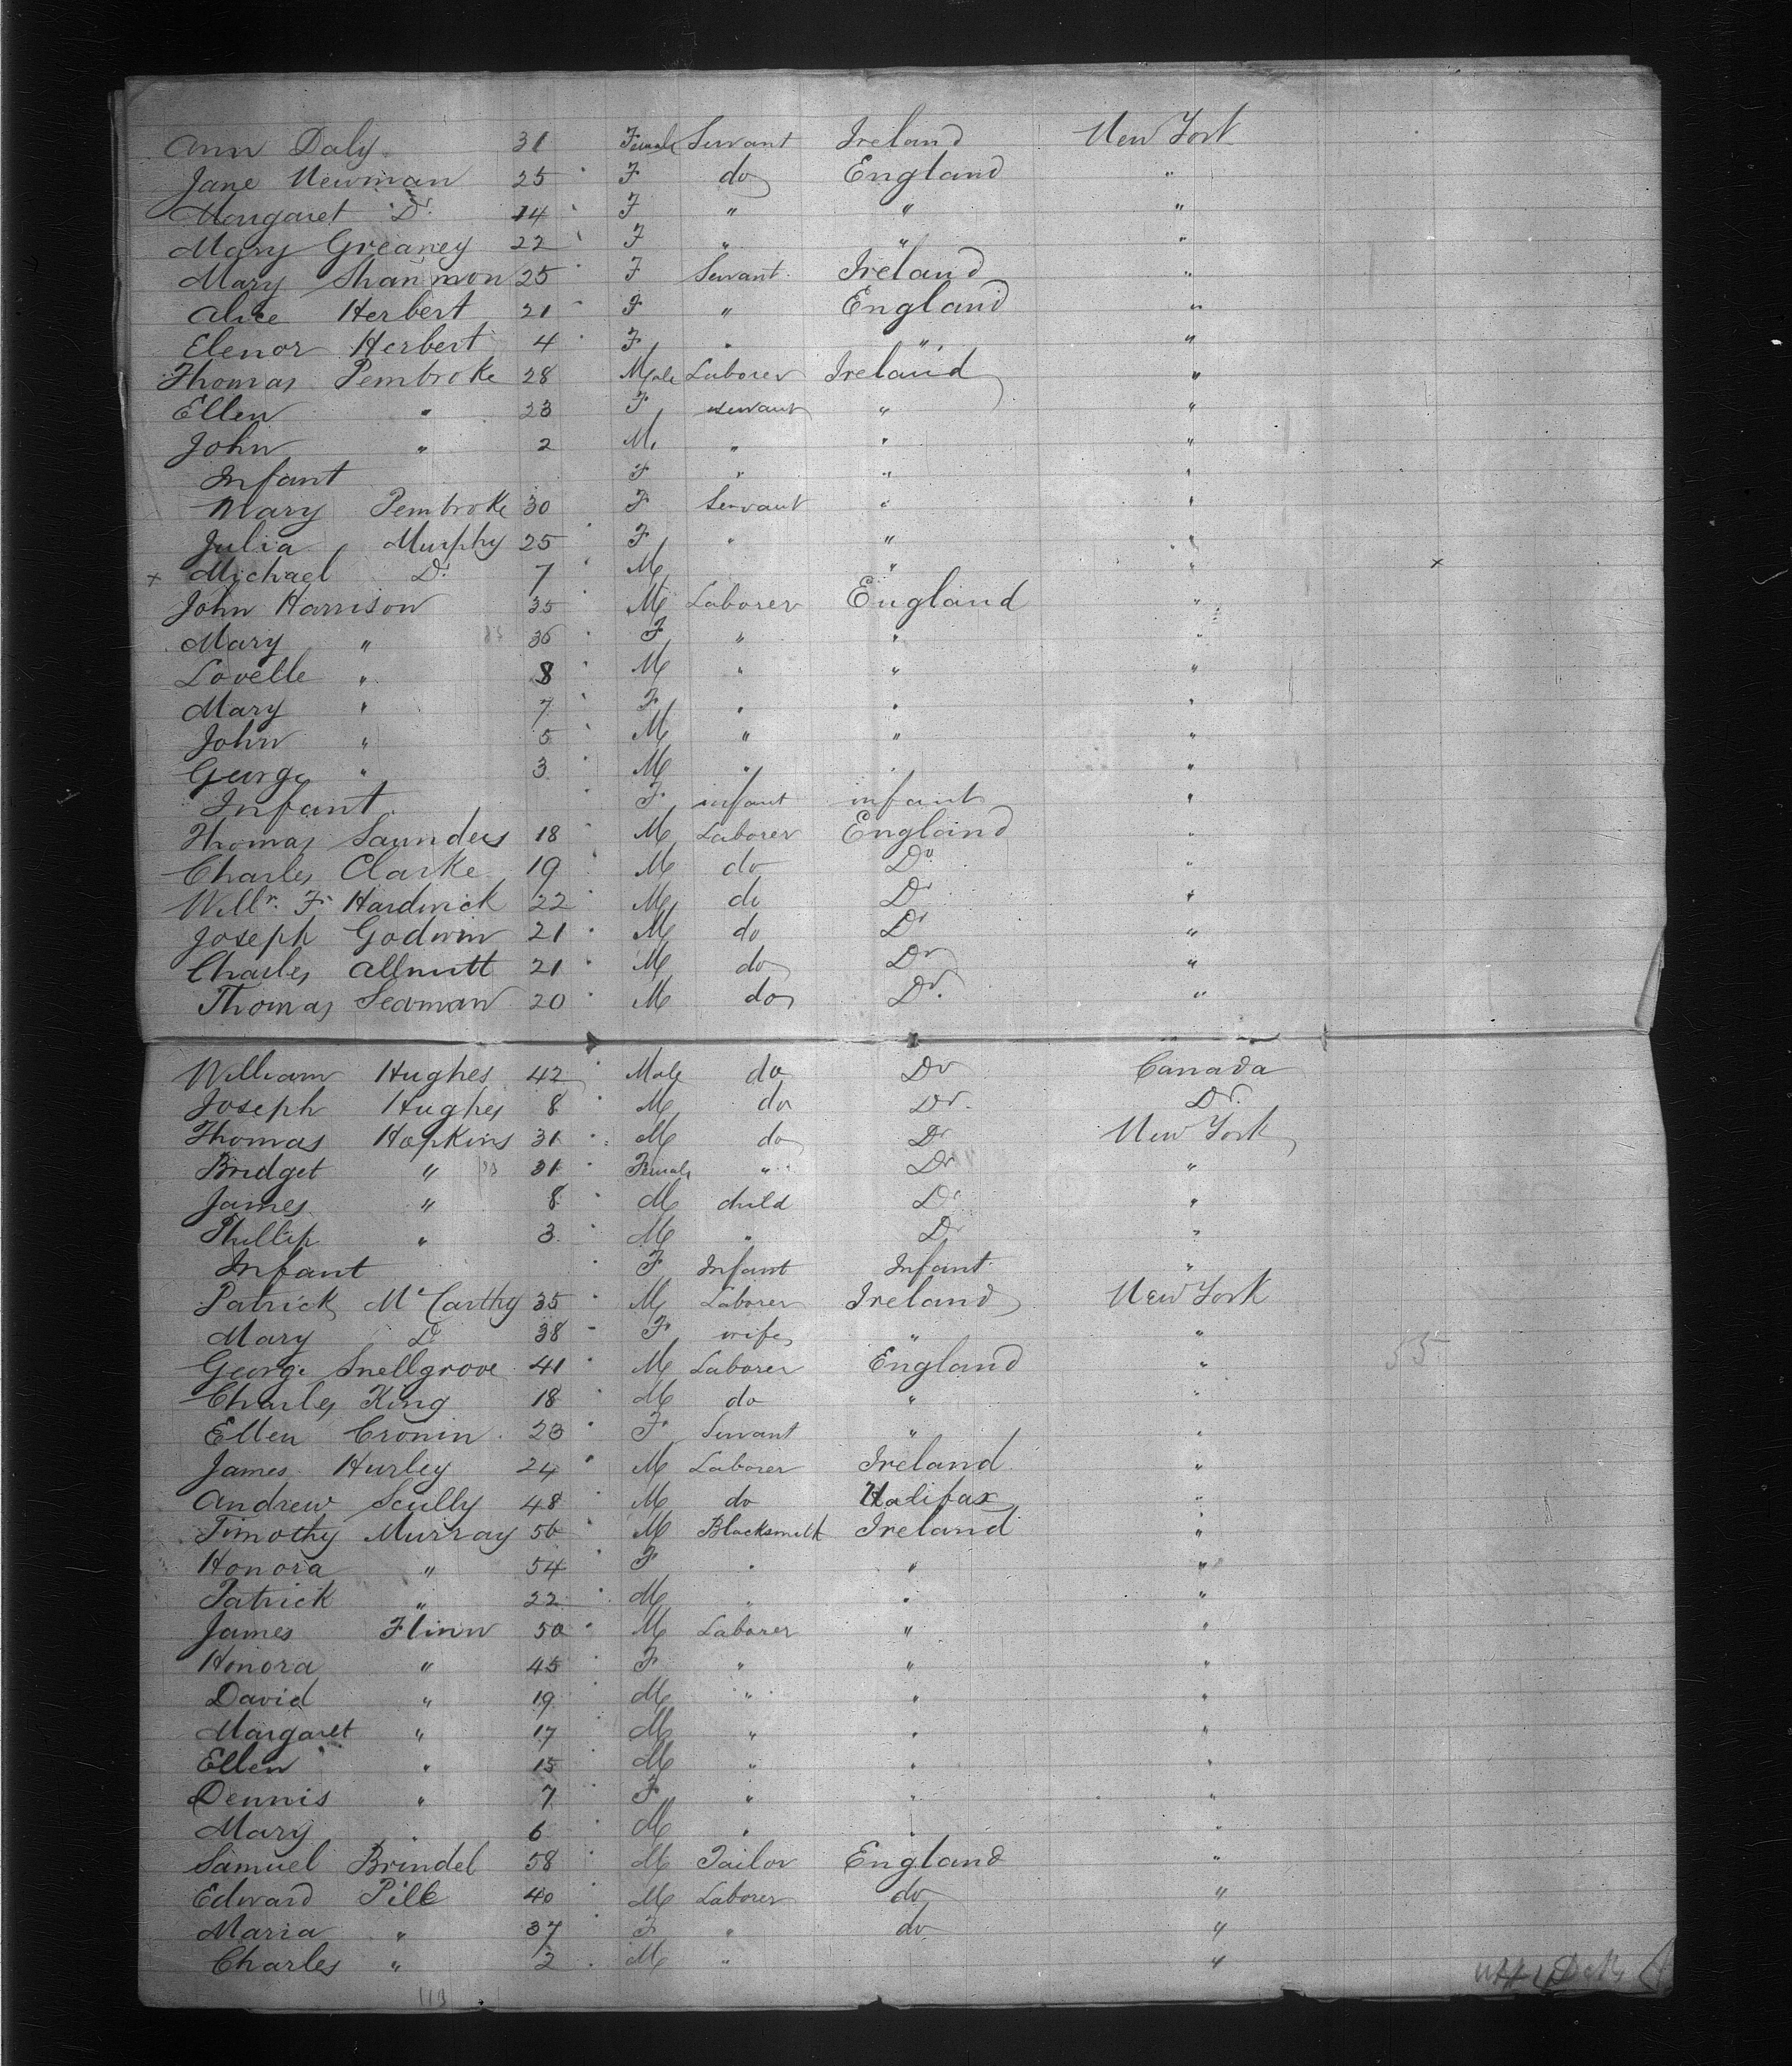 Ann Daly 31 Female Servant Ireland New York
Jane Newman 25 F do England "
Margaret Do 14 F " " "
Mary Greaney 22 F " " "
Mary Shannon 25 F Servant Ireland "
Alice Herbert 21 F " England "
Elenor Herbert 4 F " " "
Thomas Pembroke 28 Male Laborer Ireland "
Ellen " 23 F servant " "
John " 2 M " " "
Infant F " " "
Mary Pembroke 30 F Servant " "
Julia Murphy 25 F " " "
x Michael Do 7 M " " x
John Harrison 35 M Laborer England "
Mary " 36 F " " "
Lovelle " 8 M " " "
Mary " 7 F " " "
John " 5 M " " "
George " 3 M " " "
Infant F infant infant "
Thomas Saunders 18 M Laborer England "
Charles Clarke 19 M do Do "
Willm. F. Hardwick 22 M do Do "
Joseph Godwin 21 M do Do "
Charles Allnutt 21 M do Do "
Thomas Seaman 20 M do Do. "
William Hughes 42 Male do Do Canada
Joseph Hughes 8 M do Do. Do.
Thomas Hopkins 31 M do Do New York
Bridget " 31 Female " Do "
James " 8 M child Do "
Phillip " 3 M " Do "
Infant F Infant Infant "
Patrick McCarthy 35 M Laborer Ireland New York
Mary Do 38 F wife " "
George Snellgrove 41 M Laborer England "
Charles King 18 M do " "
Ellen Cronin 23 F Servant " "
James Hurley 24 M Laborer Ireland "
Andrew Scully 48 M do Halifax "
Timothy Murray 56 M Blacksmith Ireland "
Honora " 54 F " " "
Patrick " 22 M " " "
James Flinn 50 M Laborer " "
Honora " 45 F " " "
David " 19 M " " "
Margaret " 17 M " " "
Ellen " 15 M " " "
Dennis " 7 F " " "
Mary " 6 M " " "
Samuel Brindel 58 M Tailor England "
Edward Pill 40 M Laborer do "
Maria " 37 F " do "
Charles " 2 M " "
113